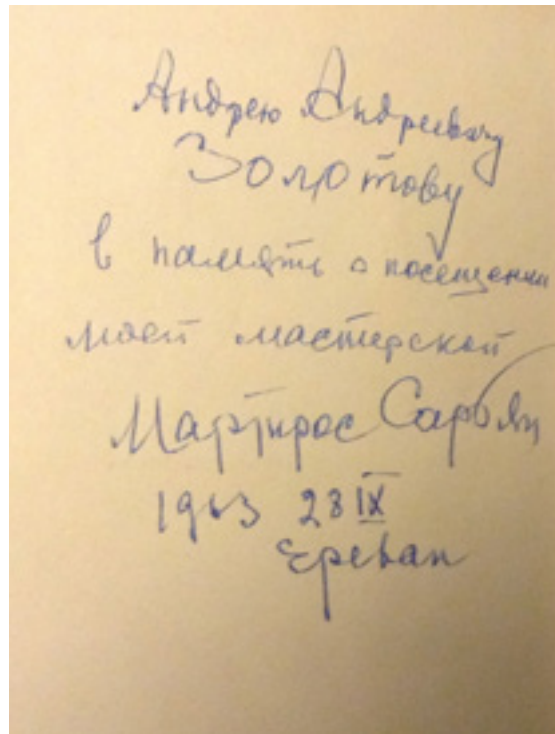 Андрею Андреевичу
Золотову
в память о посещении
моей мастерской
Мартирос Сарьян
1963 28 IX
Ереван